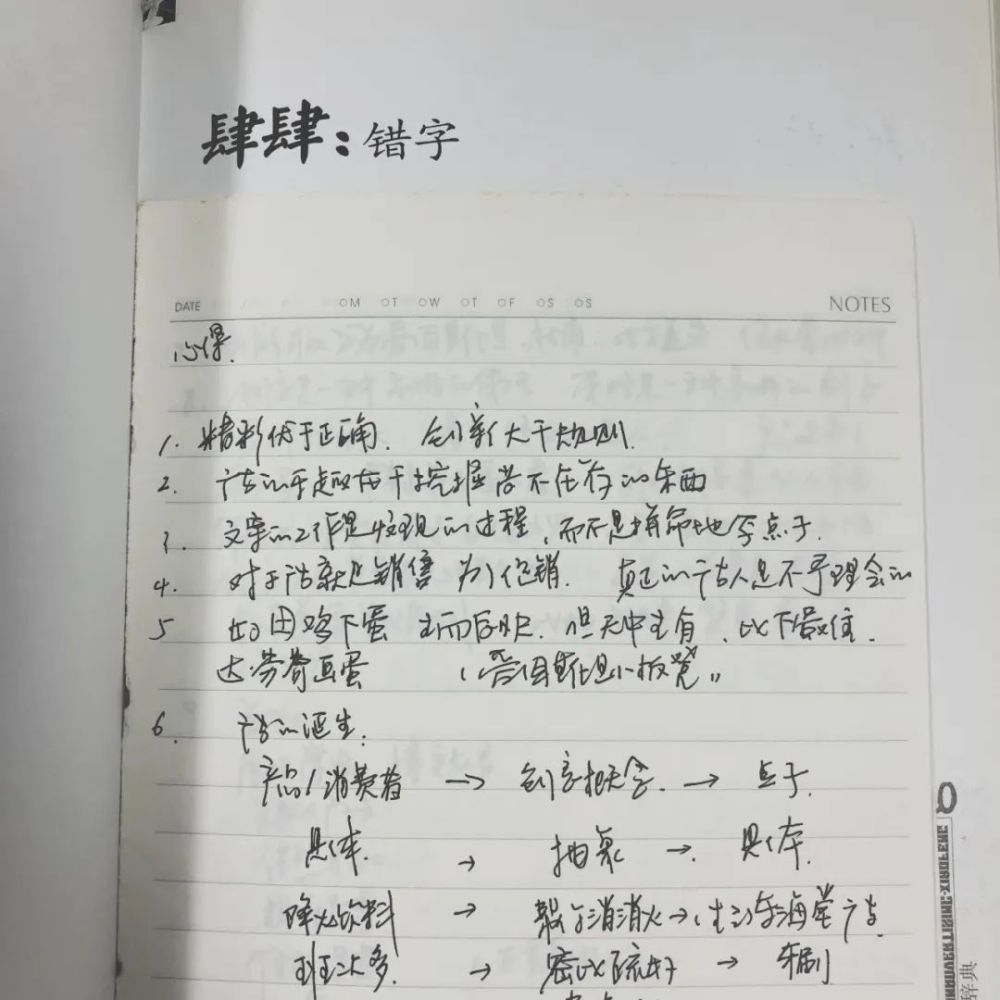 肆肆：错字
DATE OM OT OW OT OF OS OS NOTES
心得.
1. 精彩优于正确. 创新大于规则.
2. 广告的乐趣在于挖掘尚不存在的东西
3. 文案的工作是发现的过程，而不是拼命地写点子.
4. 对于广告就是销售 为了促销. 真正的广告人是不予理会的
5 如母鸡下蛋 但 有，以下最佳.
达芬奇画蛋 小板凳"
6. 广告的诞生.
产品/消费者 → 创意概念. → 点子.
具体. → 抽象 → 具体.
降火饮料 → 消消火→ 海棠广告.
班次多. → 密 疏 → 牙刷
辞典